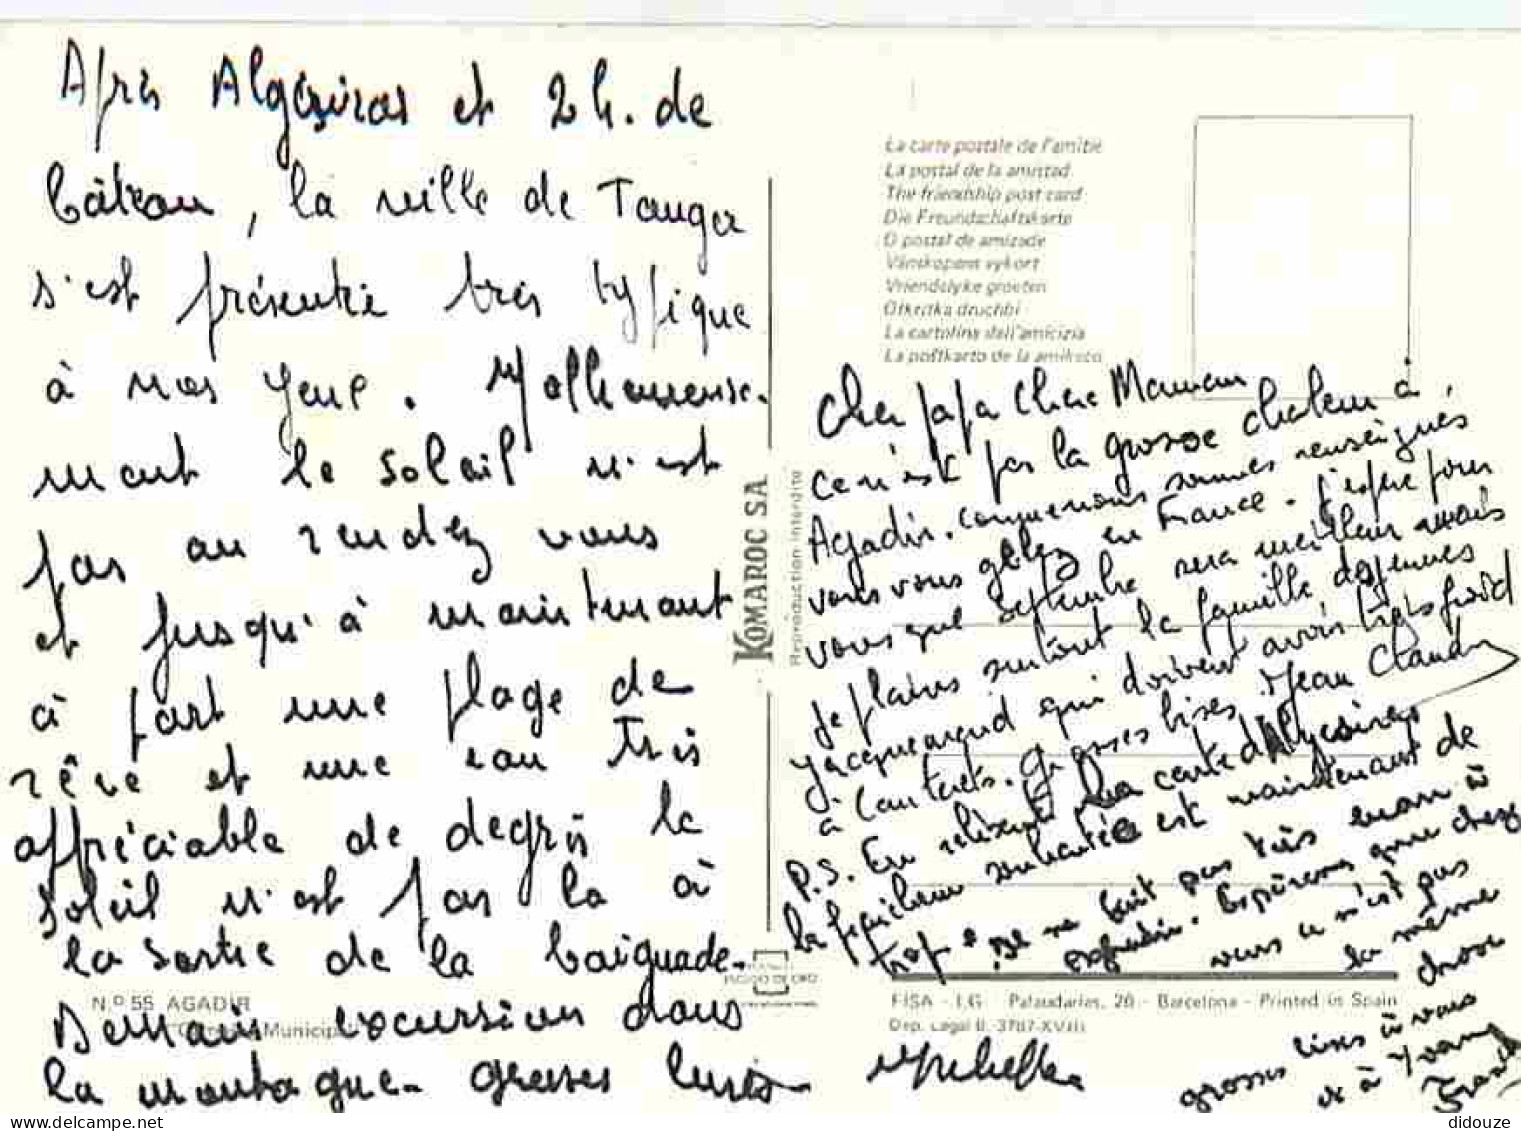 Après Algésiras et 2 h. de
bâteau, la ville de Tanger
s'est présentée très typique
à nos yeux. Malheureuse-
ment le soleil n'est
pas au rendez vous
et jusqu'à maintenant
à part une plage de
rêve et une eau très
appréciable de degrés le
soleil n'est pas là à
la sortie de la baignade.
Demain excursion dans
la montagne. grosses bises
Michelle
La carte postale de l'amitié
La postal de la amistad
The friendship post card
Die Freundschaftskarte
O postal de amizade
Vänskapens vykort
Vriendelyke groeten
Otkritka druchbi
La cartolina dell'amicizia
La poŝtkarto de la amikeco
KOMAROC S.A.
Reproduction interdite
Cher papa Chère Maman
ce n'est pas la grosse chaleur à
Agadir. comme nous sommes renseignés
vous vous gelez en France. J'espère pour
vous que septembre sera meilleur mais
je plains surtout la famille
qui doivent avoir très froid
à Cauterets. grosses bises. Jean Claude
P.S. En relisant la carte d'Algésiras
la fraicheur souhaitée est maintenant de
trop. Il ne fait pas très beau à
Agadir. Espérons que chez
vous ce n'est pas
la même
chose
grosses bises à vous
et à Yvan
Franck
N.º 55 AGADIR
Municipal
ESCUDO DE ORO
FISA - I.G. Palaudarias, 26 - Barcelona - Printed in Spain
Dep. Legal B. 3787-XVIII
didouze